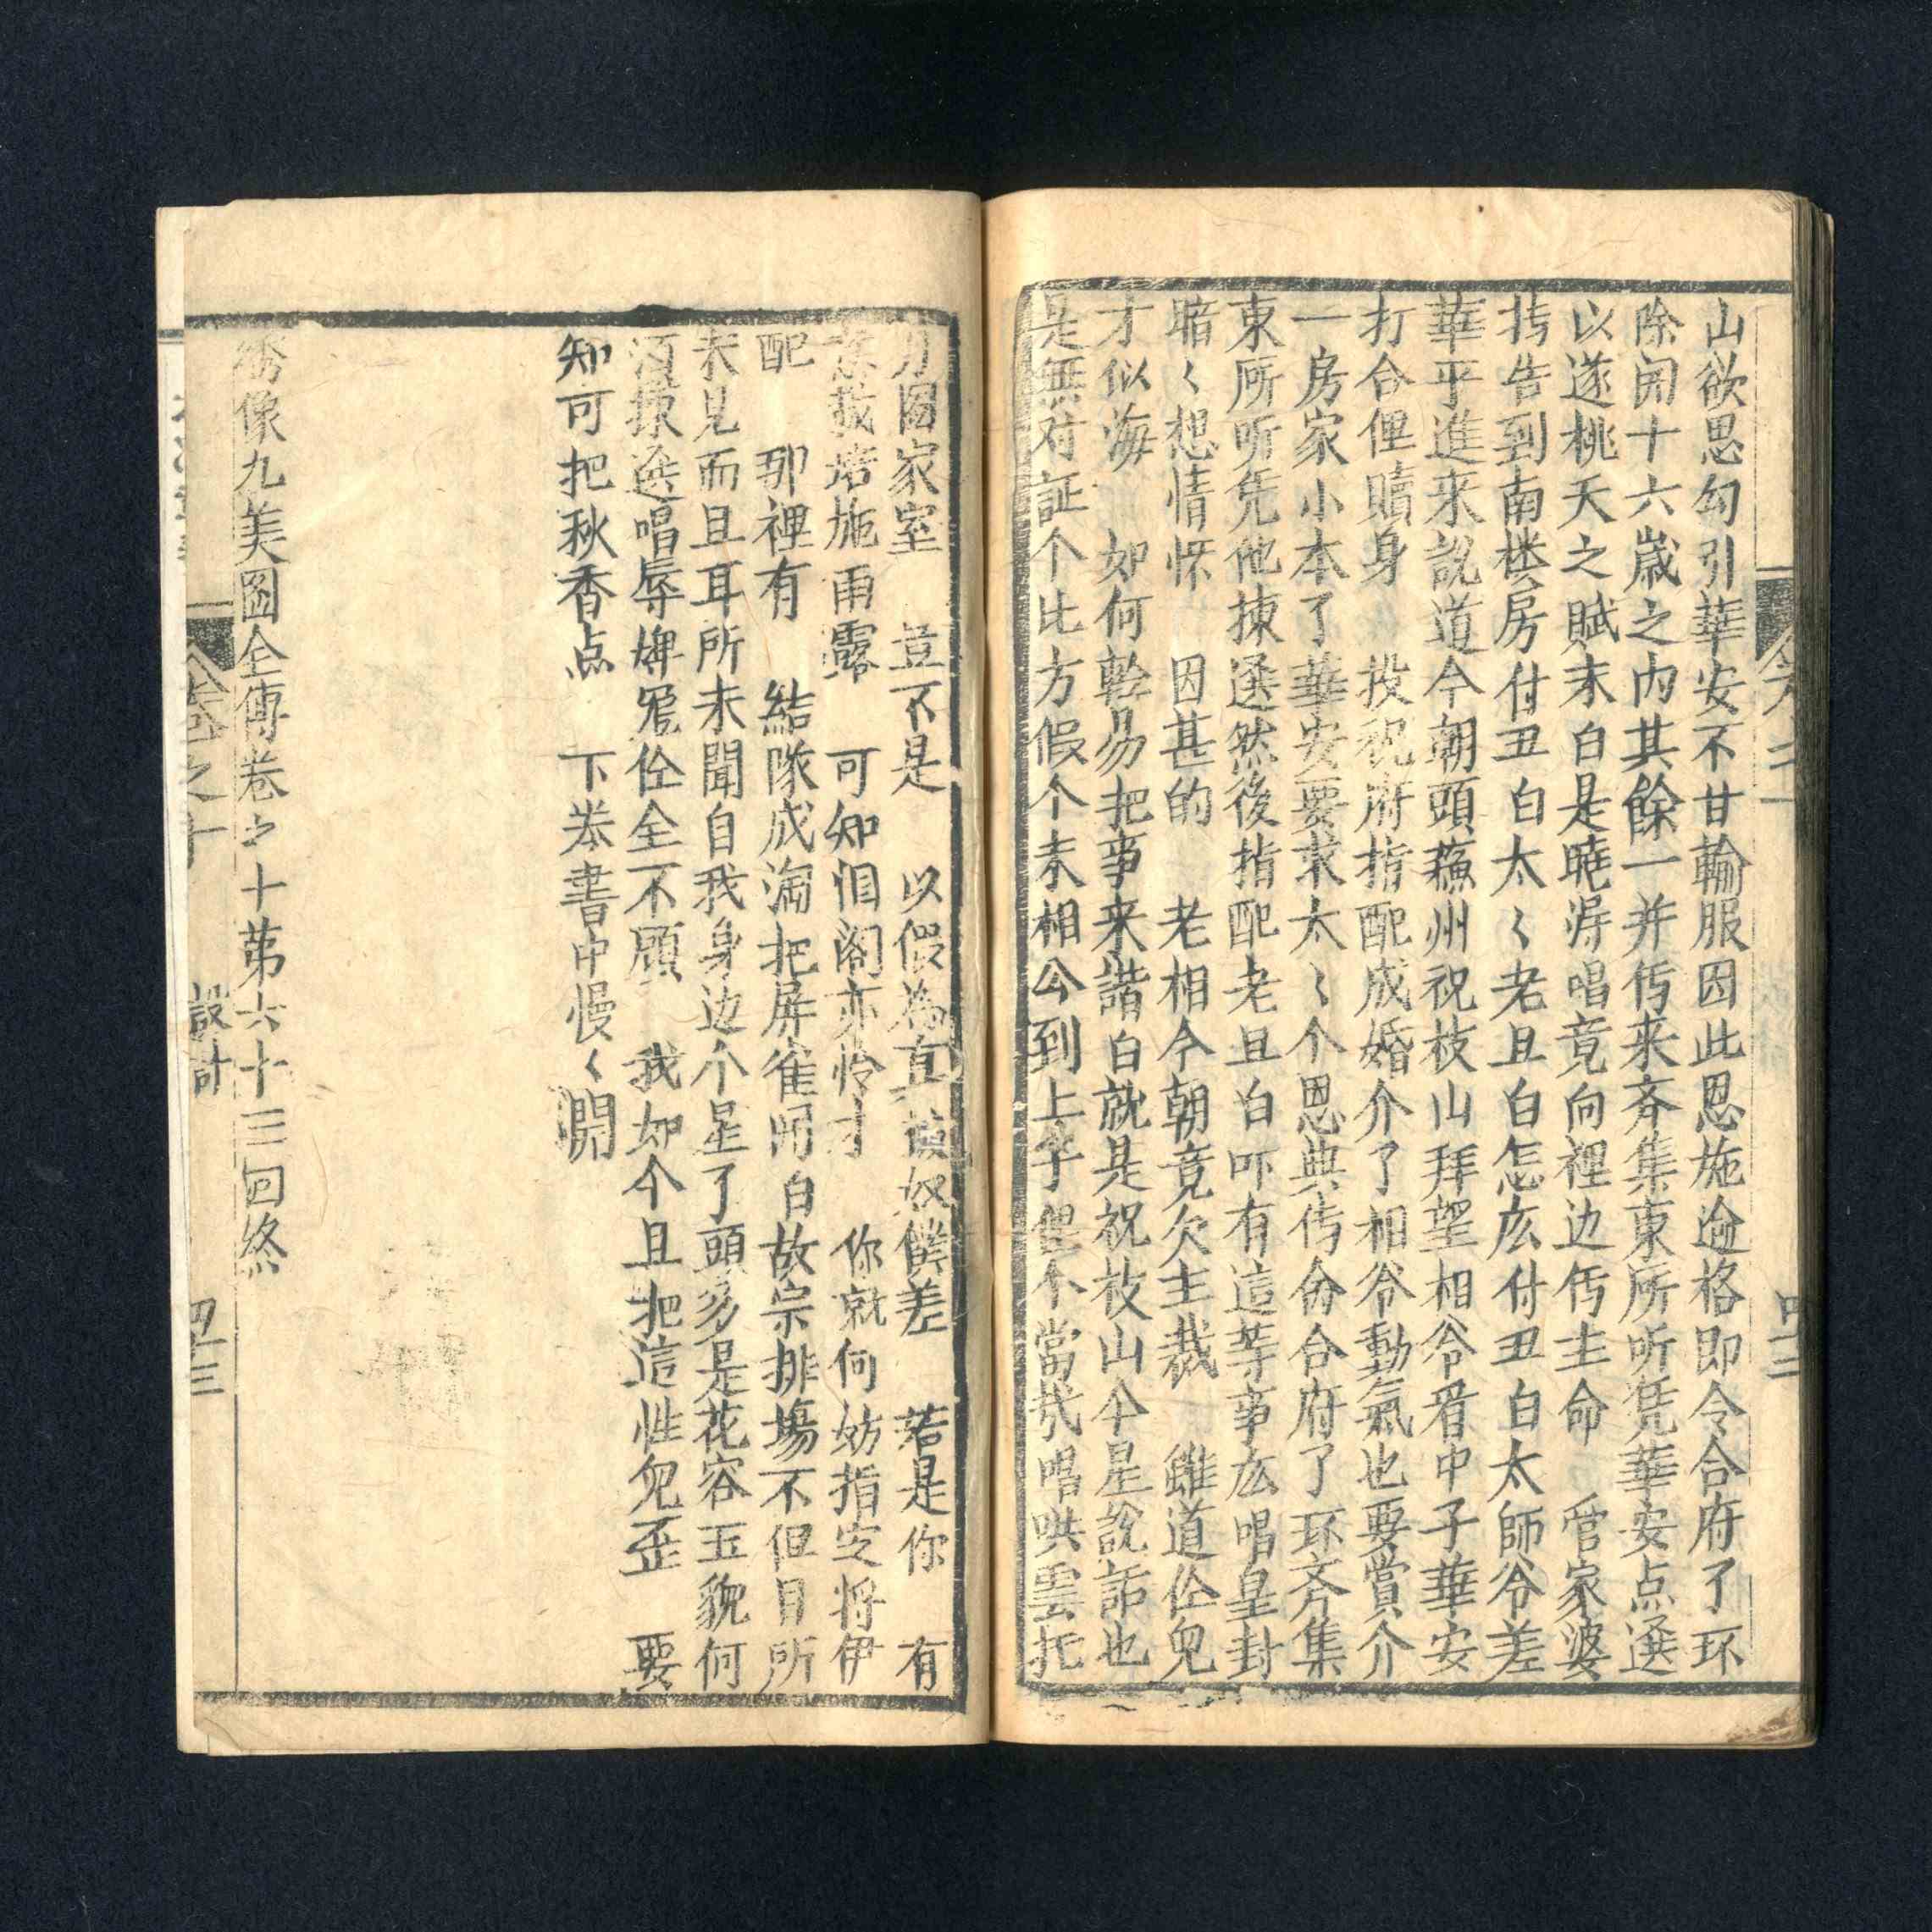 山欲思勾引華安不甘輸服因此恩施逾格即令合府了环
除闹十六歲之内其餘一并传来斉集東所听凭華安点選
以遂桃夭之賦末白是曉淂唱竟向裡边传主命 管家婆
找告到南楼房付丑白太〻老旦白怎広付丑白太師爷差
華平進来說道今朝頭蘓州祝枝山拜望相爷看中子華安
打合俚贖身 投祝府指配成婚介了相爷動氣也要賞介
一房家小本了華安要求太〻个恩典传命合府了环斉集
東所听凭他揀選然後指配老旦白吓有這等事広唱皇封
暗〻想情怀 因甚的 老相今朝竟欠主裁 雖道佺兒
才似海 如何軽易把事来諧白就是祝枝山个星說話也
是無对証个比方假个未相公到上子俚个當哉唱哄雲托
月圖家室 豈不是 以假為真 奴僕差 若是你 有
栽培施雨露 可知相阁亦怜才 你就何妨指定将伊
配 那裡有 結隊成淘把屏雀開白故宗排場不但目所
未見而且耳所未聞自我身边个星了頭多是花容玉貌何
須揀選唱辱婢冤佺全不顧 我如今且把這性兒歪 要
知可把秋香点 下卷書中慢〻開
綉像九美圖全傳卷之十第六十三回終
卷之十
設計
四十三